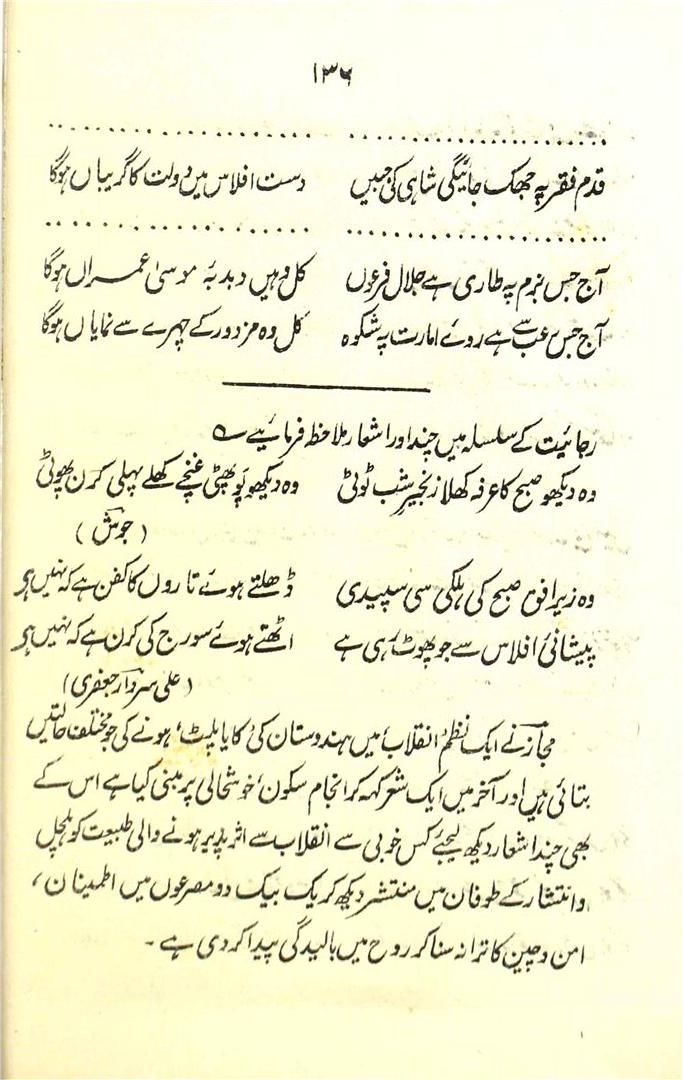 ۱۳۶
قدم فقر پہ جھک جائیگی شاہی کی جبیں دست افلاس میں دولت کا گریباں ہوگا
آج جس بزم پہ طاری ہے جلال فرعون کل وہیں دبدبۂ موسیٰ عمراں ہوگا
آج جس عب سے ہے روئے امارت پہ شکوہ کل وہ مزدور کے چہرے سے نمایاں ہوگا
رجائیت کے سلسلہ میں چند اور اشعار ملاحظہ فرمائیے
وہ دیکھو صبح کا غرفہ کھلا زنجیر شب ٹوٹی وہ دیکھو پو پھٹی غنچے کھلے پہلی کرن پھوٹی
(جوش)
وہ زیر افق صبح کی ہلکی سی سپیدی ڈھلتے ہوئے تاروں کا کفن ہے کہ نہیں ہے
پیشانیٔ افلاس سے جو پھوٹ رہی ہے اٹھتے ہوئے سورج کی کرن ہے کہ نہیں ہے
(علی سردار جعفری)
مجاز نے ایک نظم ’انقلاب‘ میں ہندوستان کی ’کایا پلٹ‘ ہونے کی جو مختلف حالتیں
بتائی ہیں اور آخر میں ایک شعر کہہ کر انجام سکون و خوشحالی پر مبنی کیا ہے اس کے
بھی چند اشعار دیکھ لیجئے کس خوبی سے انقلاب سے اثر پذیر ہونے والی طبیعت کو ہلچل
و انتشار کے طوفان میں منتشر دیکھ کر یک بیک دو مصرعوں میں اطمینان،
امن و چین کا ترانہ سنا کر روح میں بالیدگی پیدا کر دی ہے۔